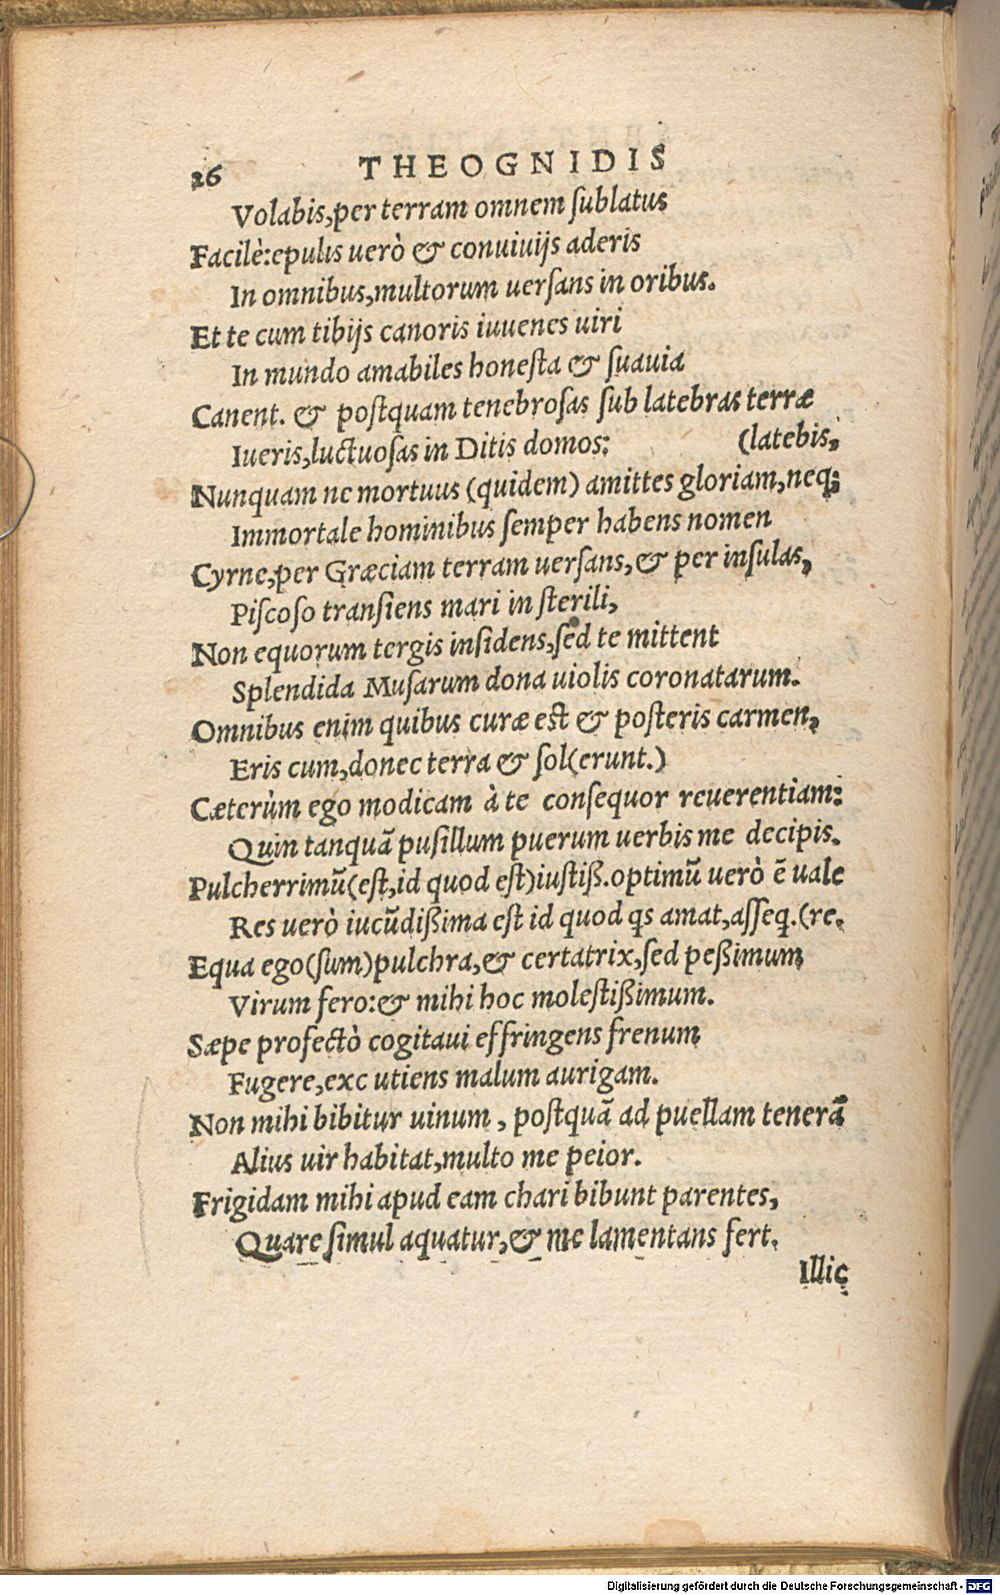 26 THEOGNIDIS
Volabis,per terram omnem ſublatus
Facilè:epulis uerò & conuiuijs aderis
In omnibus,multorum uerſans in oribus.
Et te cum tibijs canoris iuuenes uiri
In mundo amabiles honeſta & ſuauia
Canent. & poſtquam tenebroſas ſub latebras terræ
Iueris,luctuoſas in Ditis domos: (latebis,
Nunquam ne mortuus (quidem) amittes gloriam,neq;
Immortale hominibus ſemper habens nomen
Cyrne,per Græciam terram uerſans,& per inſulas,
Piſcoſo tranſiens mari in ſterili,
Non equorum tergis inſidens,ſed te mittent
Splendida Muſarum dona uiolis coronatarum.
Omnibus enim quibus curæ est & poſteris carmen,
Eris cum,donec terra & ſol(erunt.)
Cæterùm ego modicam à te conſequor reuerentiam:
Quin tanquã puſillum puerum uerbis me decipis.
Pulcherrimũ(eſt,id quod eſt)iuſtiß.optimũ uerò ẽ uale
Res uerò iucũdißima eſt id quod qs amat,aſſeq.(re.
Equa ego(ſum)pulchra,& certatrix,ſed peßimum
Virum fero:& mihi hoc moleſtißimum.
Sæpe profectò cogitaui effringens frenum
Fugere,exc utiens malum aurigam.
Non mihi bibitur uinum , poſtquã ad puellam tenerã
Alius uir habitat,multo me peior.
Frigidam mihi apud eam chari bibunt parentes,
Quare ſimul aquatur,& me lamentans fert.
Illic
Digitalisierung gefördert durch die Deutsche Forschungsgemeinschaft - DFG